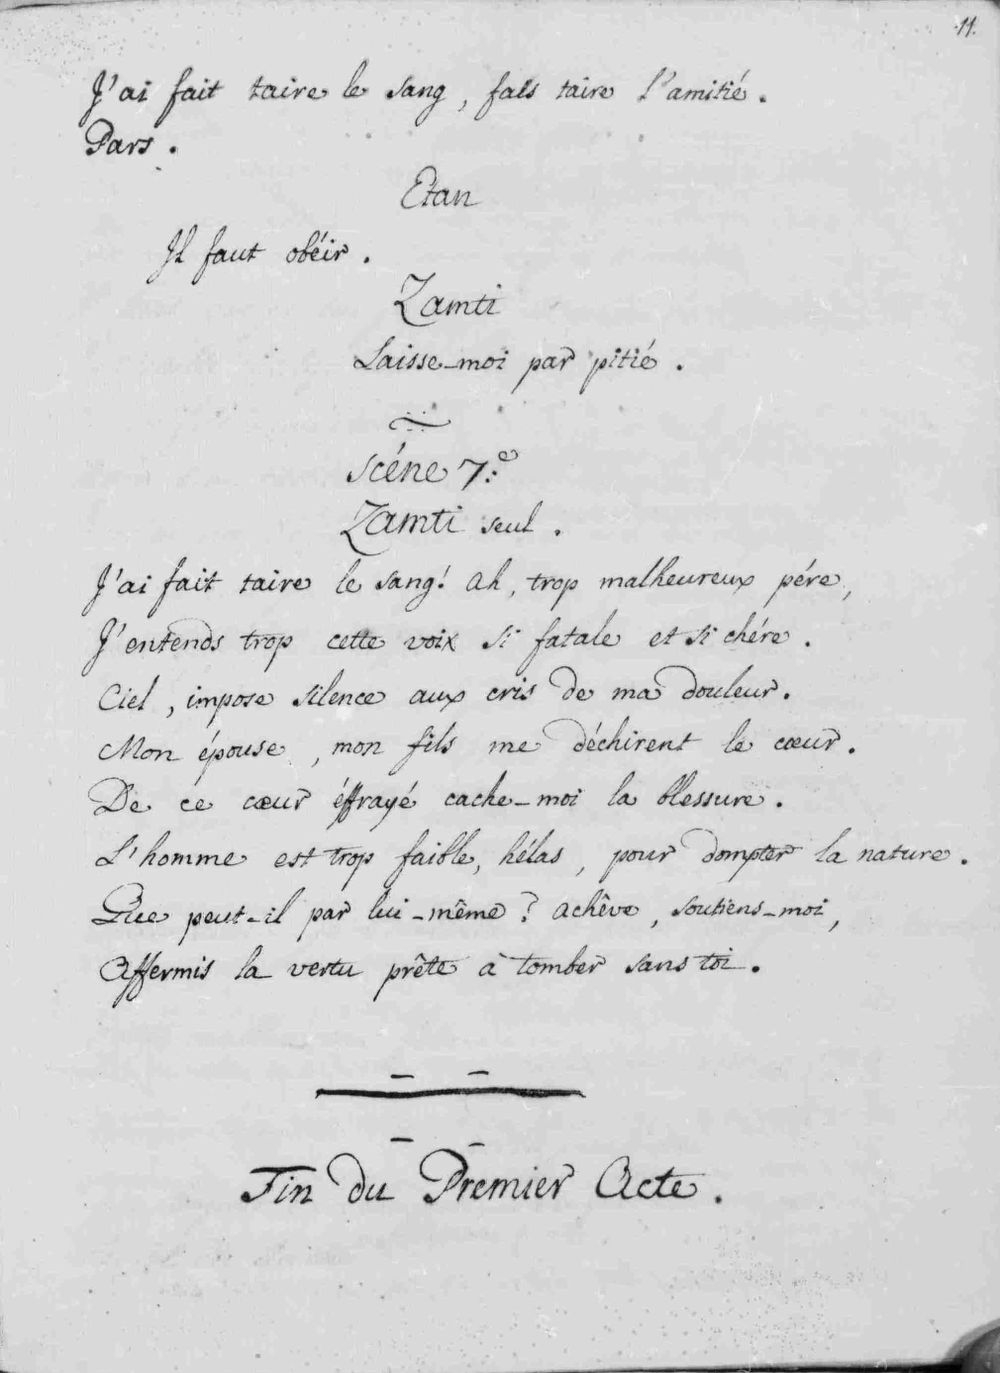 11.
J'ai fait taire le sang, fais taire l'amitié.
Pars.
Etan
Il faut obéir.
Zamti
Laisse-moi par pitié.
Scéne 7.e
Zamti seul.
J'ai fait taire le sang! ah, trop malheureux pére,
J'entends trop cette voix si fatale et si chére.
Ciel, impose silence aux cris de ma douleur.
Mon épouse, mon fils me déchirent le cœur.
De ce cœur éffrayé cache-moi la blessure.
L'homme est trop faible, hélas, pour dompter la nature.
Que peut-il par lui-même? achêve, soutiens-moi,
Affermis la vertu prête à tomber sans toi.
Fin du Premier Acte.